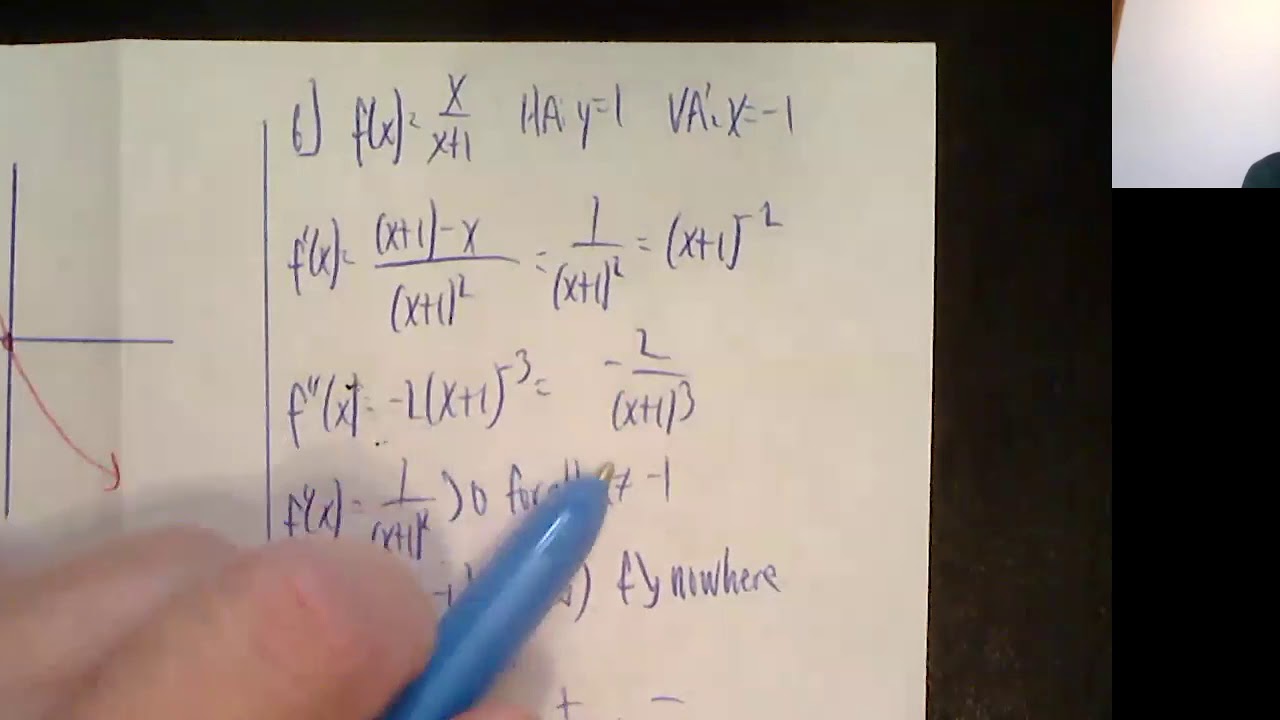 6] f(x)= x/(x+1) HA: y=1 VA: x=-1
f'(x)= ((x+1)-x)/(x+1)² = 1/(x+1)² = (x+1)⁻²
f''(x)= -2(x+1)⁻³ = -2/(x+1)³
f'(x)= 1/(x+1)² >0 for all x≠ -1
) f↘ nowhere
+ −